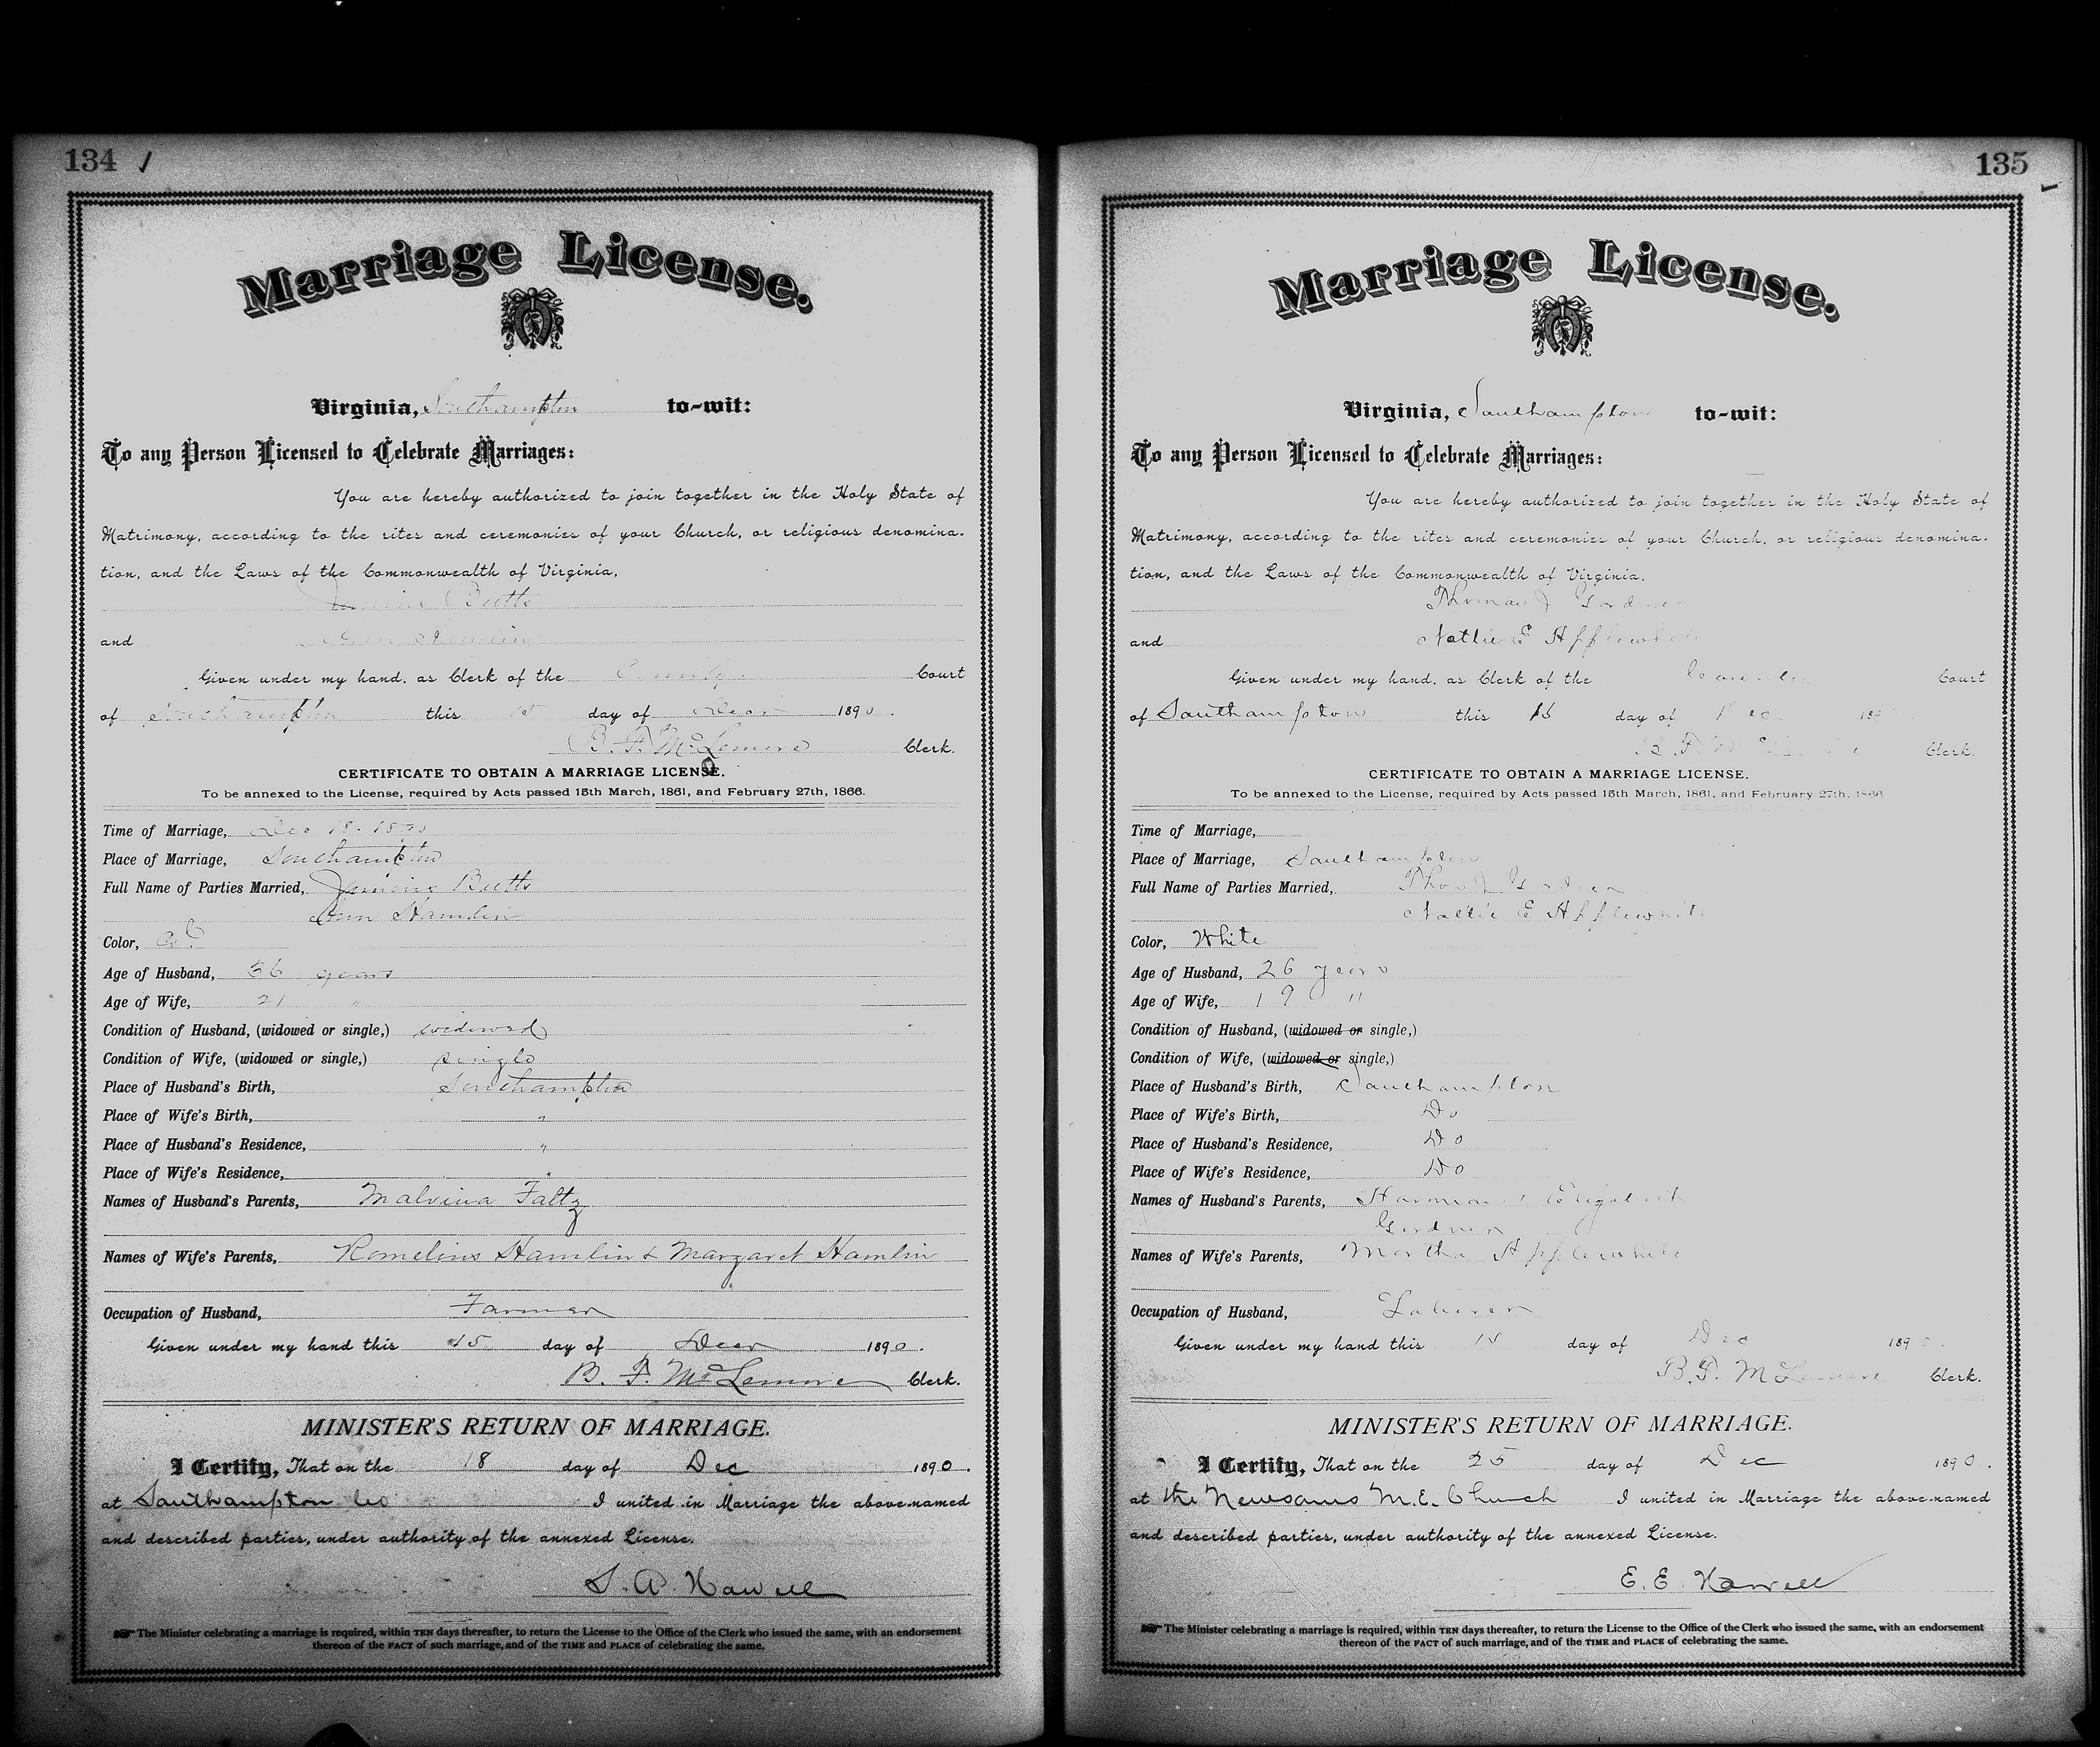 134
Marriage License.
Virginia, Southampton to-wit:
To any Person Licensed to Celebrate Marriages:
You are hereby authorized to join together in the Holy State of
Matrimony, according to the rites and ceremonies of your Church, or religious denomina-
tion, and the Laws of the Commonwealth of Virginia,
Butts
and Hamlin
Given under my hand, as Clerk of the County Court
of Southampton this 15 day of 1890.
B. F. McLemore Clerk.
CERTIFICATE TO OBTAIN A MARRIAGE LICENSE.
To be annexed to the License, required by Acts passed 15th March, 1861, and February 27th, 1866.
Time of Marriage, Dec 18. 1890
Place of Marriage, Southampton
Full Name of Parties Married, Butts
Ann Hamlin
Color,
Age of Husband, years
Age of Wife, 21 "
Condition of Husband, (widowed or single,) widowed
Condition of Wife, (widowed or single,) single
Place of Husband's Birth, Southampton
Place of Wife's Birth, "
Place of Husband's Residence, "
Place of Wife's Residence, "
Names of Husband's Parents, Malvina Faltz
Names of Wife's Parents, Romelius Hamlin & Margaret Hamlin
Occupation of Husband, Farmer
Given under my hand this 15 day of 1890.
B. F. McLemore Clerk.
MINISTER'S RETURN OF MARRIAGE.
I Certify, That on the 18 day of Dec 1890.
at Southampton Co I united in Marriage the above-named
and described parties, under authority of the annexed License.
Howell
The Minister celebrating a marriage is required, within TEN days thereafter, to return the License to the Office of the Clerk who issued the same, with an endorsement
thereon of the FACT of such marriage, and of the TIME and PLACE of celebrating the same.
135
Marriage License.
Virginia, Southampton to-wit:
To any Person Licensed to Celebrate Marriages:
You are hereby authorized to join together in the Holy State of
Matrimony, according to the rites and ceremonies of your Church, or religious denomina-
tion, and the Laws of the Commonwealth of Virginia,
Thomas J
and Nattie E Applewhite
Given under my hand, as Clerk of the County Court
of Southampton this day of Dec 189
B. F. Clerk.
CERTIFICATE TO OBTAIN A MARRIAGE LICENSE.
To be annexed to the License, required by Acts passed 15th March, 1861, and February 27th, 1866
Time of Marriage,
Place of Marriage, Southampton
Full Name of Parties Married, Thos J
Nattie E Applewhite
Color, White
Age of Husband, 26 years
Age of Wife, 19 "
Condition of Husband, (widowed or single,)
Condition of Wife, (widowed or single,)
Place of Husband's Birth, Southampton
Place of Wife's Birth, Do
Place of Husband's Residence, Do
Place of Wife's Residence, Do
Names of Husband's Parents,
Gardner
Names of Wife's Parents, Martha Applewhite
Occupation of Husband, Laborer
Given under my hand this 15 day of Dec 189
B. F. McLemore Clerk.
MINISTER'S RETURN OF MARRIAGE.
I Certify, That on the 25 day of Dec 1890.
at the Newsoms M. E. Church I united in Marriage the above-named
and described parties, under authority of the annexed License.
E. E. Harrell
The Minister celebrating a marriage is required, within TEN days thereafter, to return the License to the Office of the Clerk who issued the same, with an endorsement
thereon of the FACT of such marriage, and of the TIME and PLACE of celebrating the same.